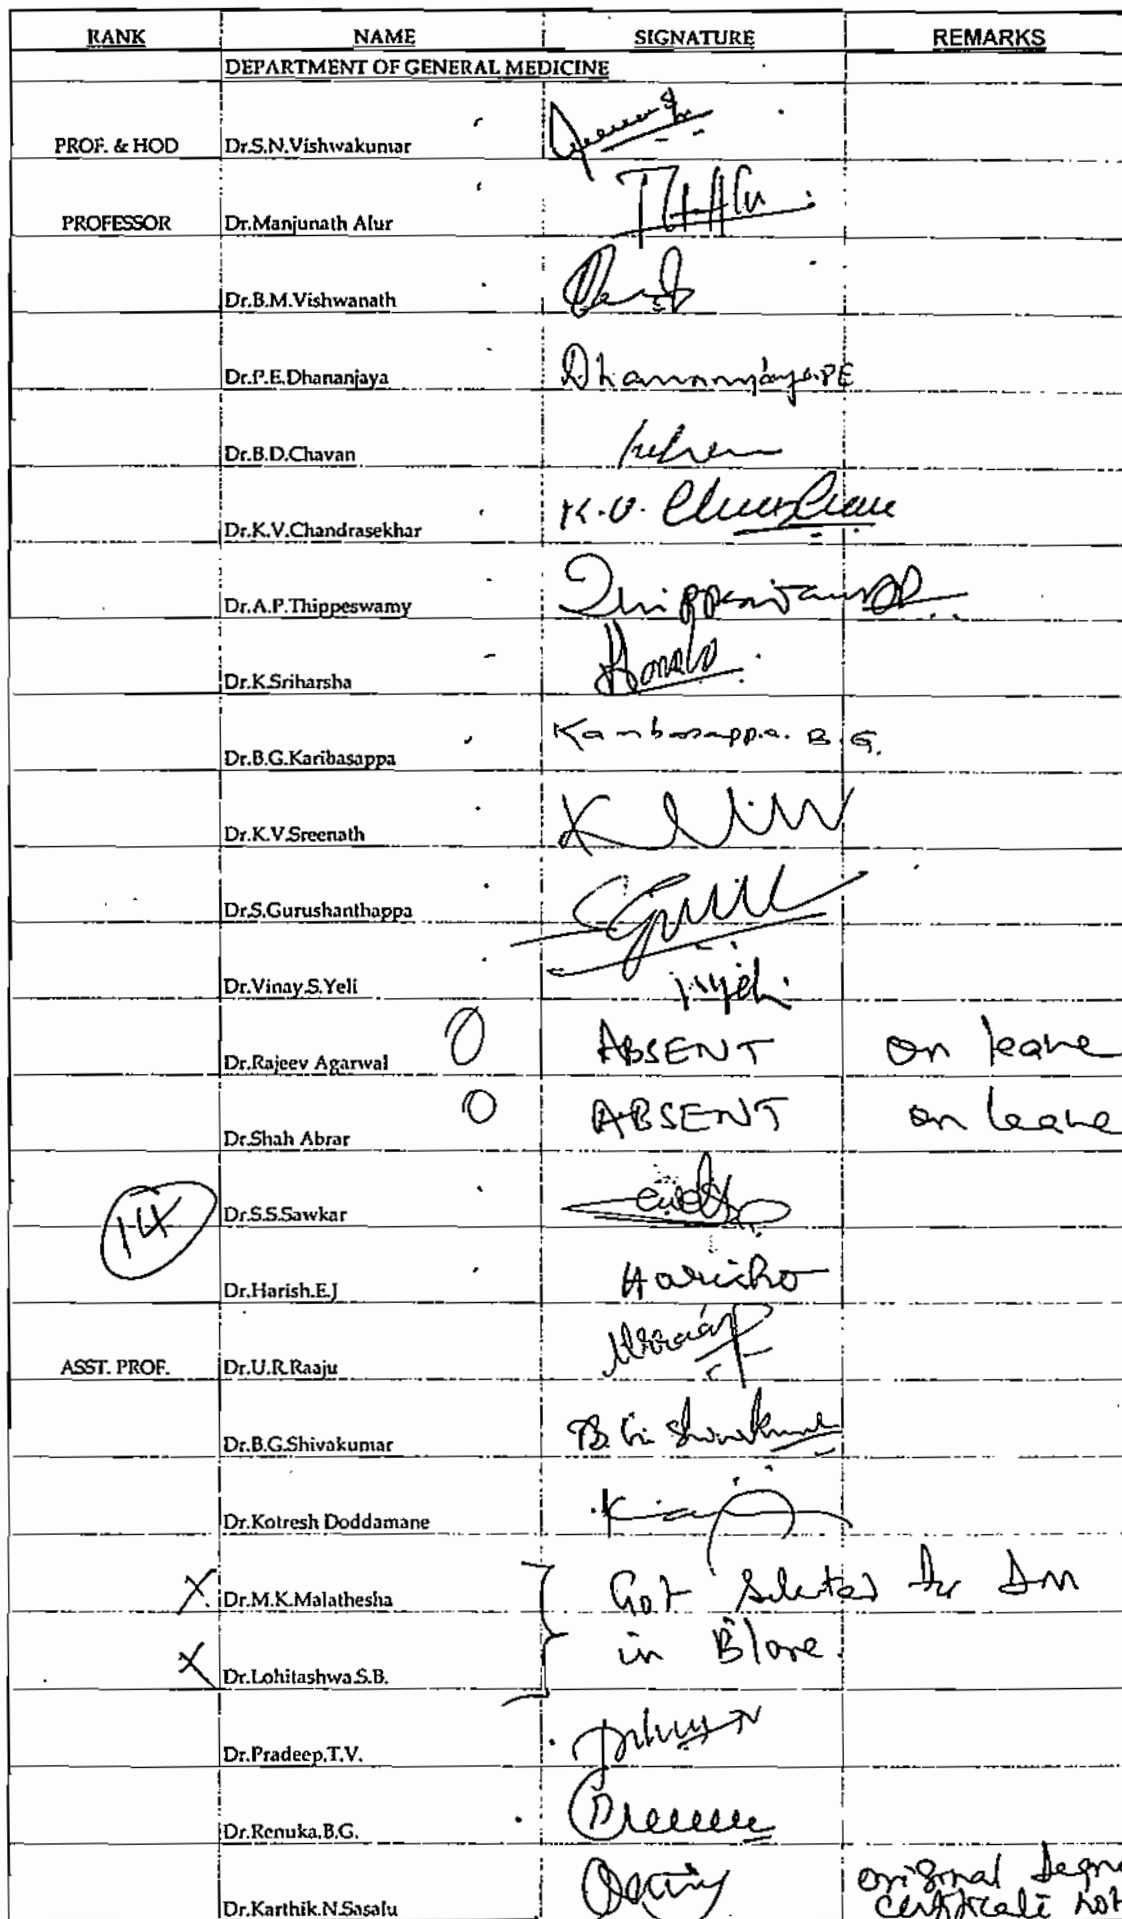 RANK NAME SIGNATURE REMARKS
DEPARTMENT OF GENERAL MEDICINE
PROF. & HOD Dr.S.N.Vishwakumar
PROFESSOR Dr.Manjunath Alur
Dr.B.M.Vishwanath
Dr.P.E.Dhananjaya Dhananjaya.PE
Dr.B.D.Chavan
Dr.K.V.Chandrasekhar K.V.
Dr.A.P.Thippeswamy
Dr.K.Sriharsha
Dr.B.G.Karibasappa Karibasappa. B.G.
Dr.K.V.Sreenath
Dr.S.Gurushanthappa
Dr.Vinay.S.Yeli
Dr.Rajeev Agarwal ABSENT on leave
Dr.Shah Abrar ABSENT on leave
14 Dr.S.S.Sawkar
Dr.Harish.E.J
ASST. PROF. Dr.U.R.Raaju
Dr.B.G.Shivakumar B.G. Shivakumar
Dr.Kotresh Doddamane
X Dr.M.K.Malathesha Got Selected for DM
X Dr.Lohitashwa.S.B. in B'lore.
Dr.Pradeep.T.V.
Dr.Renuka.B.G.
Dr.Karthik.N.Sasalu original Degre
certificate not